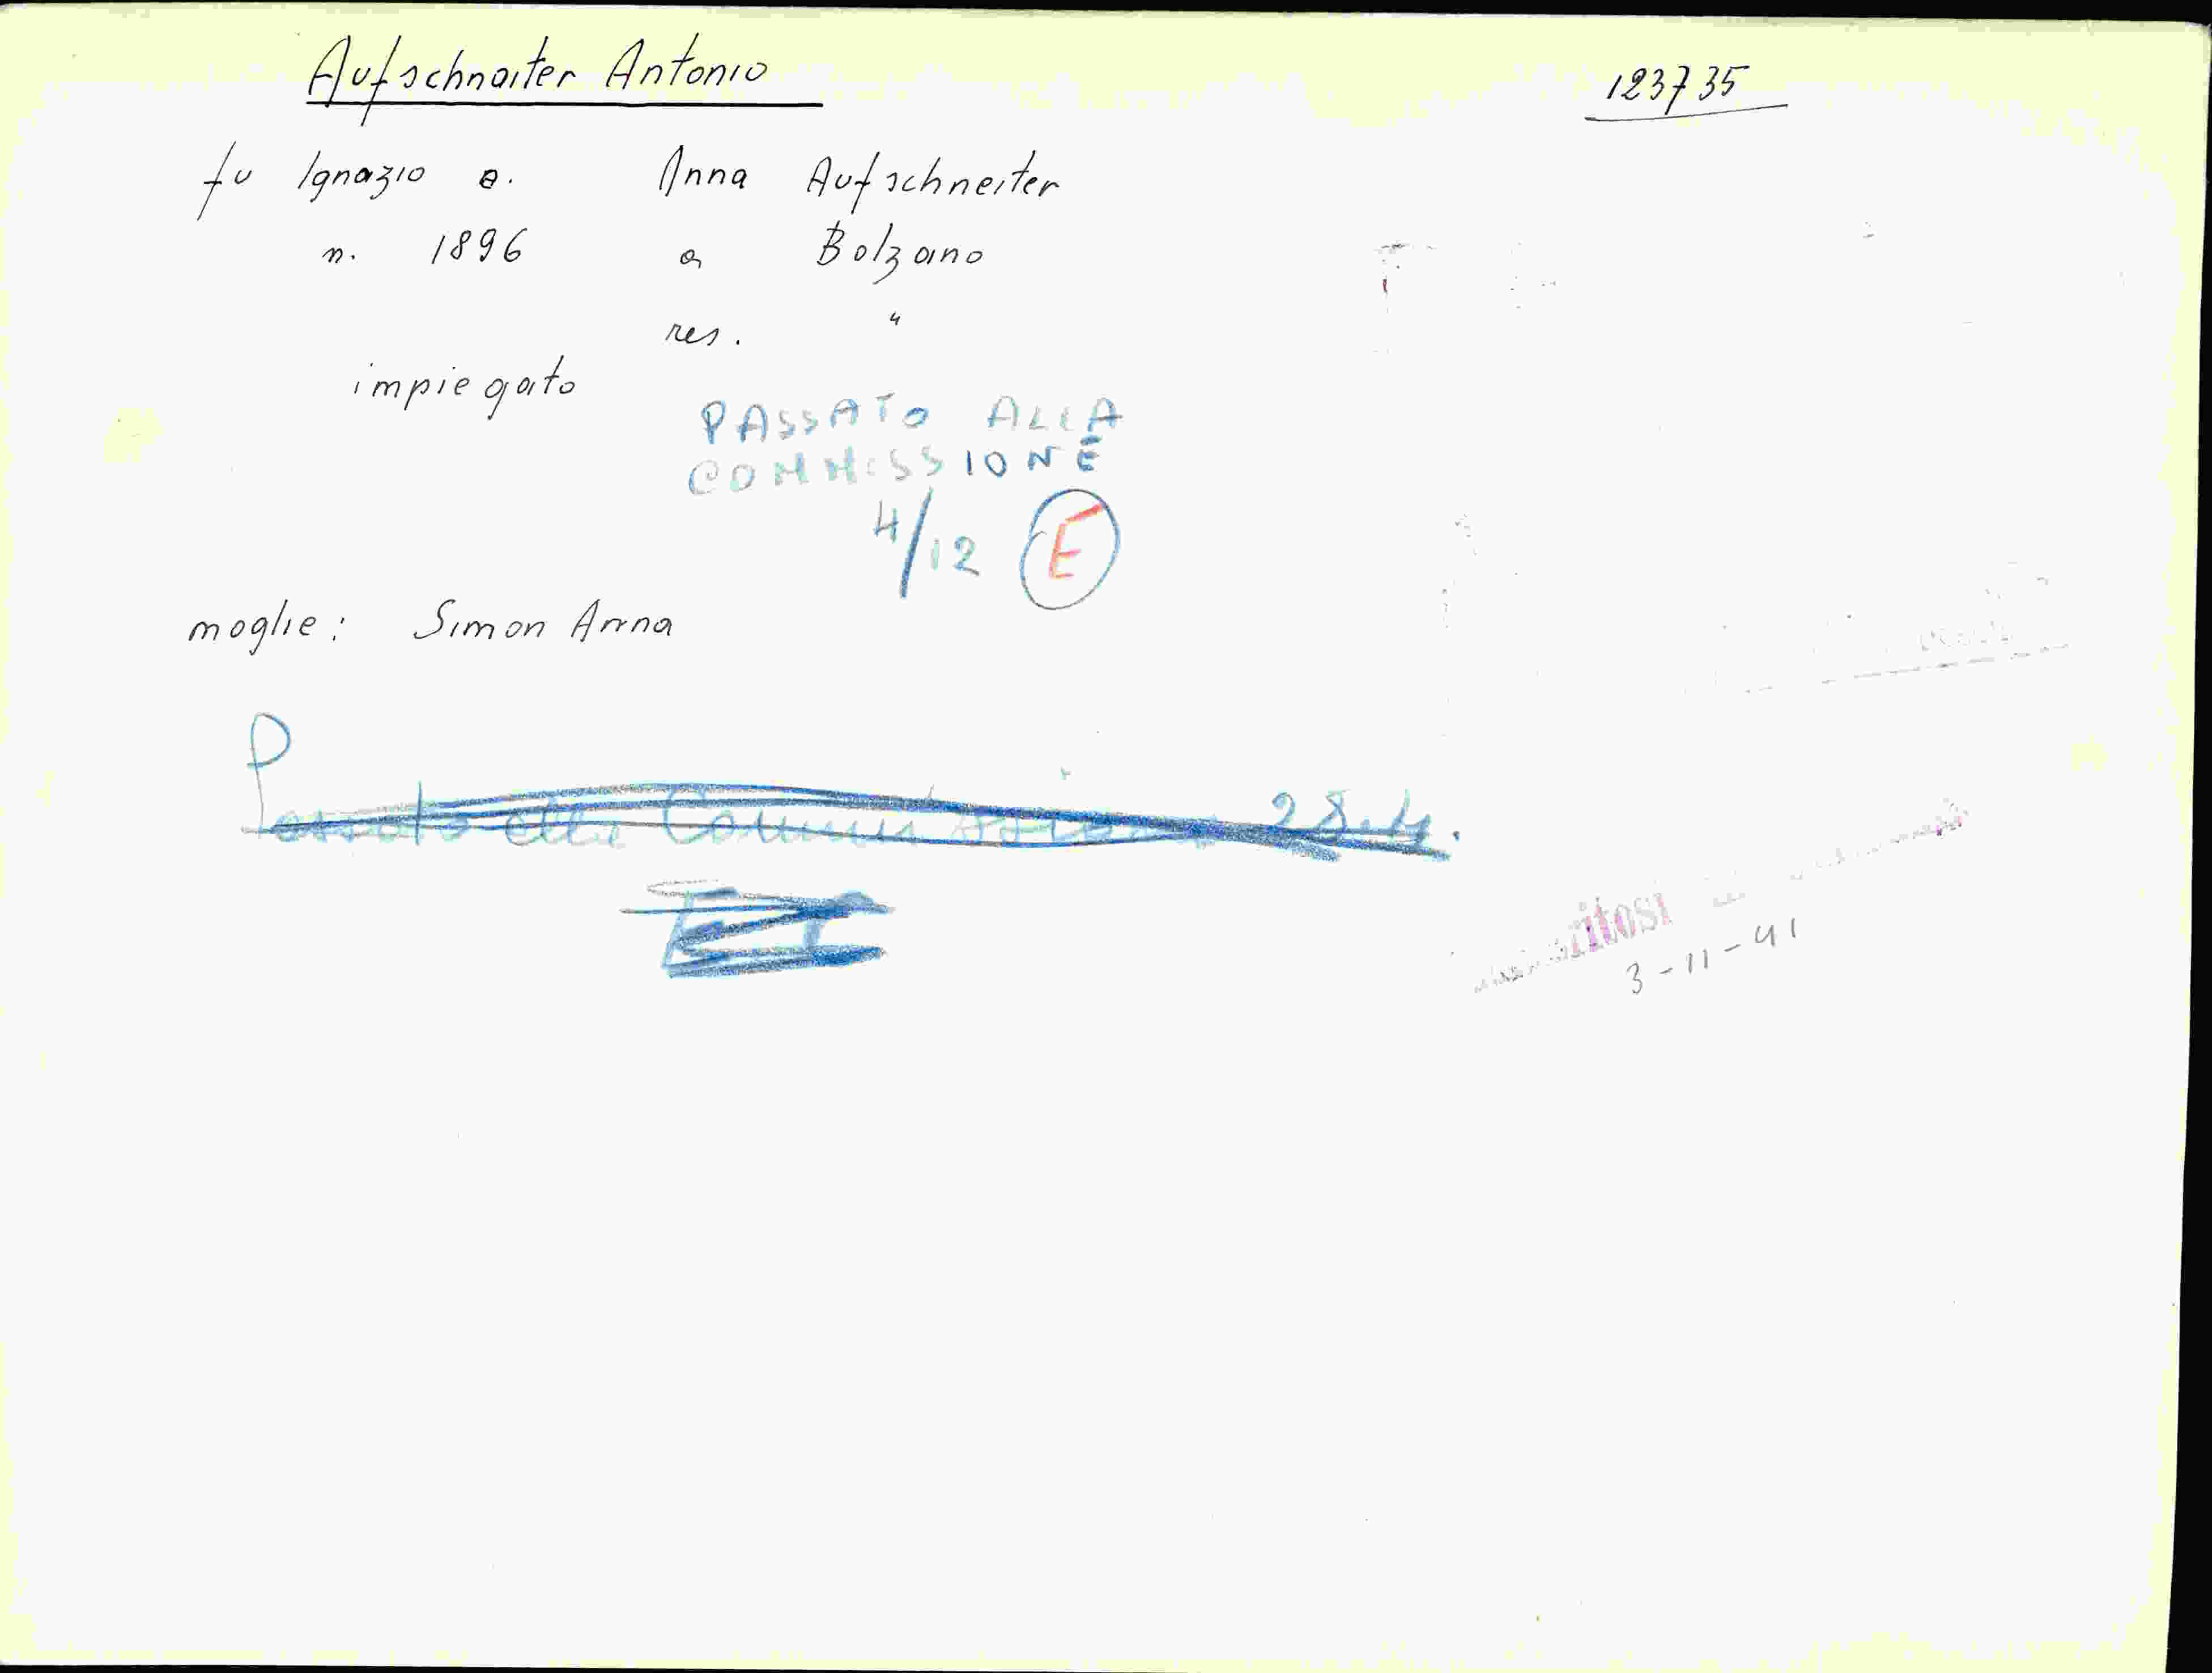 Aufschnaiter Antonio 123735
fu Ignazio e. Anna Aufschneiter
n. 1896 a Bolzano
res. "
impiegato
PASSATO ALLA
COMMISSIONE
4/12 E
moglie: Simon Anna
Passato alla Commissione 28.4.
3-11-41